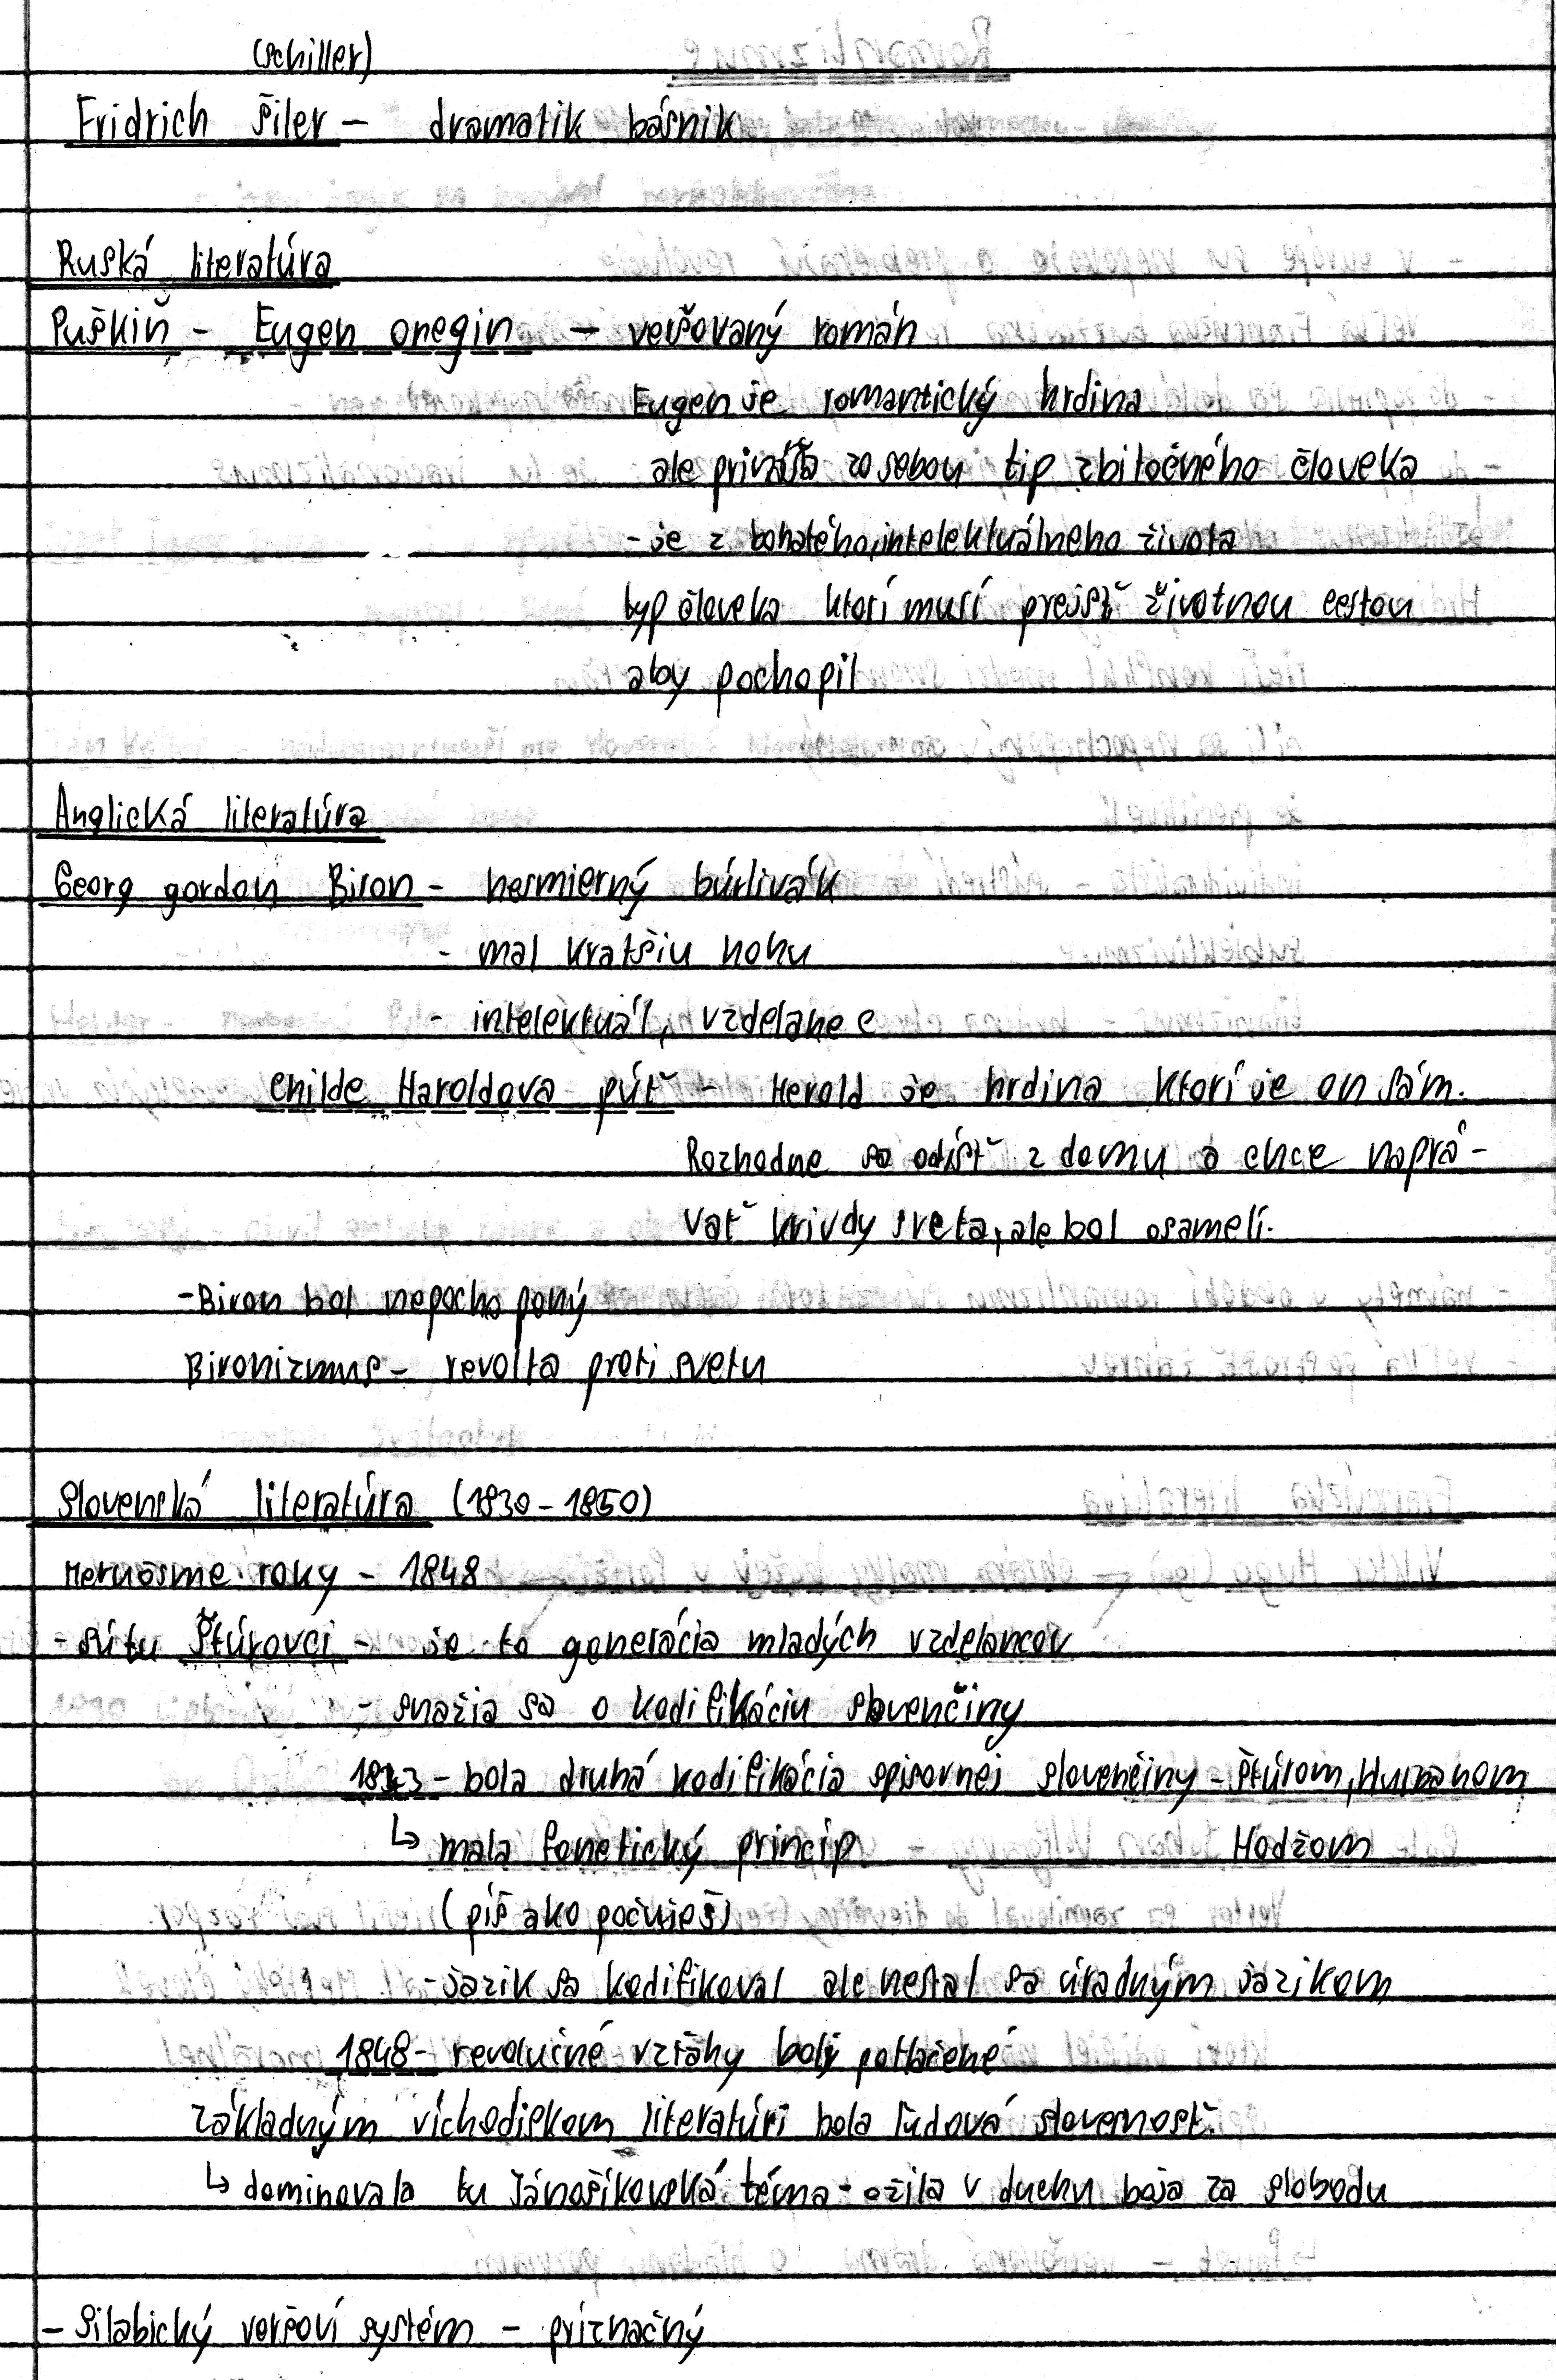 (Schiller)
Fridrich Šiler - dramatik básnik
Ruská literatúra
Puškiň - Eugen onegin - veršovaný román
Eugen je romantický hrdina
ale prináša zo sebou tip zbitočného človeka
- je z bohatého, intelektuálneho života
typ človeka ktorí musí prejsť životnou cestou
aby pochopil
Anglická literatúra
Georg gordon Biron - nesmierný búrlivák
- mal kratšiu nohu
- intelektuál, vzdelanec
Childe Haroldova púť - Herold je hrdina ktorí je on sám.
Rozhodne sa odísť z domu a chce naprá-
vať krivdy sveta, ale bol osamelí.
- Biron bol nepochopený
Bironizmus - revolta proti svetu
Slovenská literatúra (1830 - 1850)
Meruôsme roky - 1848
- sú tu Štúrovci - je to generácia mladých vzdelancov
- snažia sa o kodifikáciu slovenčiny
1843 - bola druhá kodifikácia spisovnej slovenčiny - Štúrom, Hurbanom
↳ mala fonetický princíp Hodžom
(píš ako počuješ)
- jazik sa kodifikoval ale nestal sa úradným jazikom
1848 - revolučné vzťahy boli potlačené
základným víchodiskom literatúri bola ľudová slovesnosť.
↳ dominovala tu Jánošíkovská téma - ožila v duchu boja za slobodu
- Silabický veršoví systém - príznačný